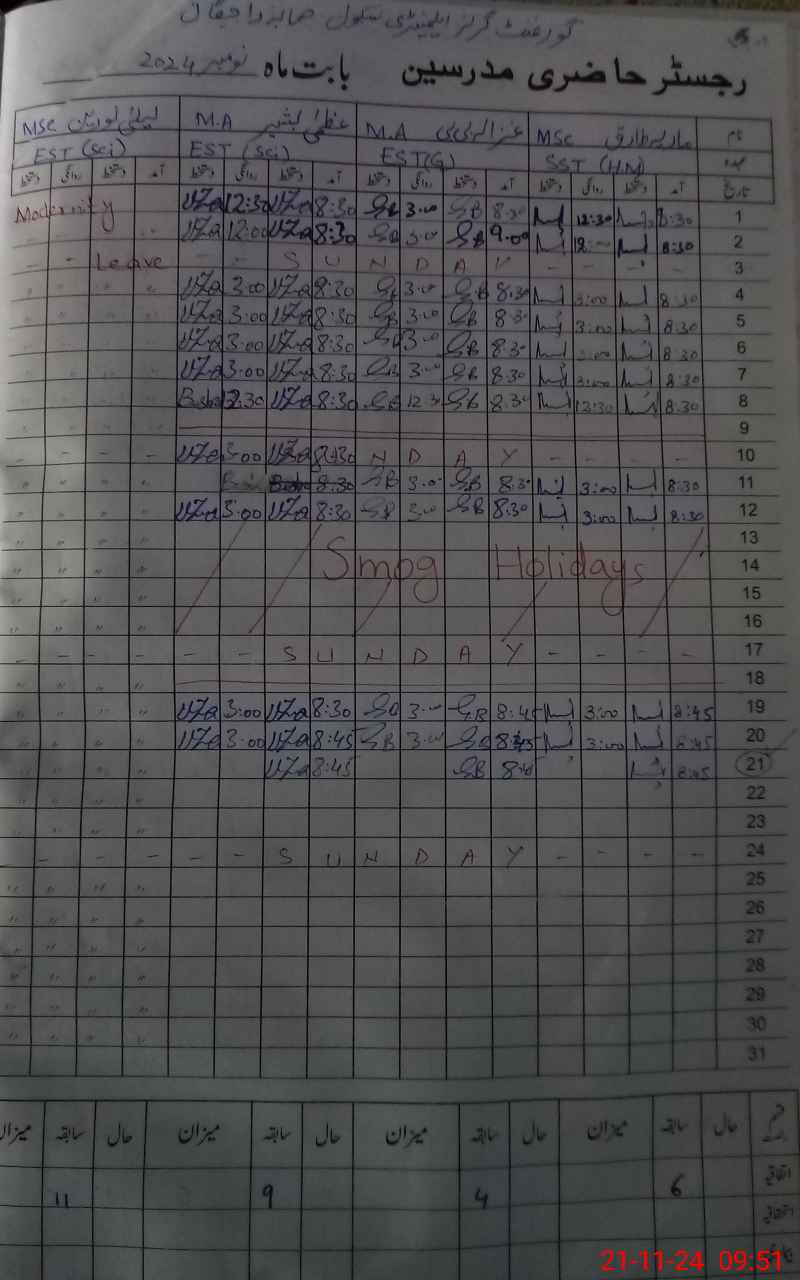 گورنمنٹ گرلز ایلیمنٹری سکول
رجسٹر حاضری مدرسین بابت ماہ نومبر 2024
نام ماریہ طارق MSc غزالہ بی بی M.A عظمیٰ بشیر M.A MSc
عہدہ SST (H.M) EST(G) EST (Sci) EST (Sci)
تاریخ آمد دستخط روانگی دستخط آمد دستخط روانگی دستخط آمد دستخط روانگی دستخط آمد دستخط روانگی دستخط
1 8:30 12:30 8:30 GB 3:00 GB 8:30 UZa 12:30 UZa Modernity
2 8:30 12:00 9:00 GB 3:00 GB 8:30 UZa 12:00 UZa
3 - - - - SUNDAY - - Leave - -
4 8:30 3:00 8:30 GB 3:00 GB 8:30 UZa 3:00 UZa
5 8:30 3:00 8:30 GB 3:00 GB 8:30 UZa 3:00 UZa
6 8:30 3:00 8:30 GB 3:00 GB 8:30 UZa 3:00 UZa
7 8:30 3:00 8:30 GB 3:00 GB 8:30 UZa 3:00 UZa
8 8:30 12:30 8:30 GB 12:30 GB 8:30 UZa 12:30
9
10 - - - - Y A D N 8:30 UZa 3:00 UZa - - - -
11 8:30 3:00 8:30 GB 3:00 GB 8:30
12 8:30 3:00 8:30 GB 3:00 GB 8:30 UZa 3:00 UZa
13
14 Smog Holidays
15
16
17 - - - - SUNDAY - - - - - -
18
19 8:45 3:00 8:45 GB 3:00 GB 8:30 UZa 3:00 UZa
20 8:45 3:00 8:45 GB 3:00 GB 8:45 UZa 3:00 UZa
21 8:45 8:45 GB 8:45 UZa
22
23
24 - - - - SUNDAY - - - - - -
25
26
27
28
29
30
31
حال سابقہ میزان حال سابقہ میزان حال سابقہ میزان حال سابقہ میزان
اتفاقیہ 6 4 9 11
21-11-24 09:51